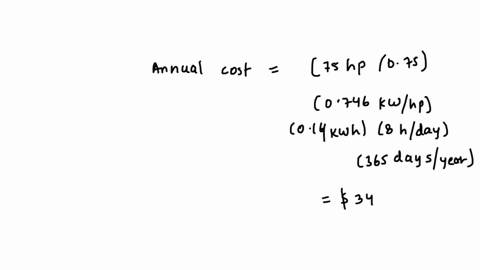 Annual cost = [75 hp (0.75)
(0.746 kw/hp]
(0.14 kwh) (8 h/day)
(365 days/year)
= $ 34